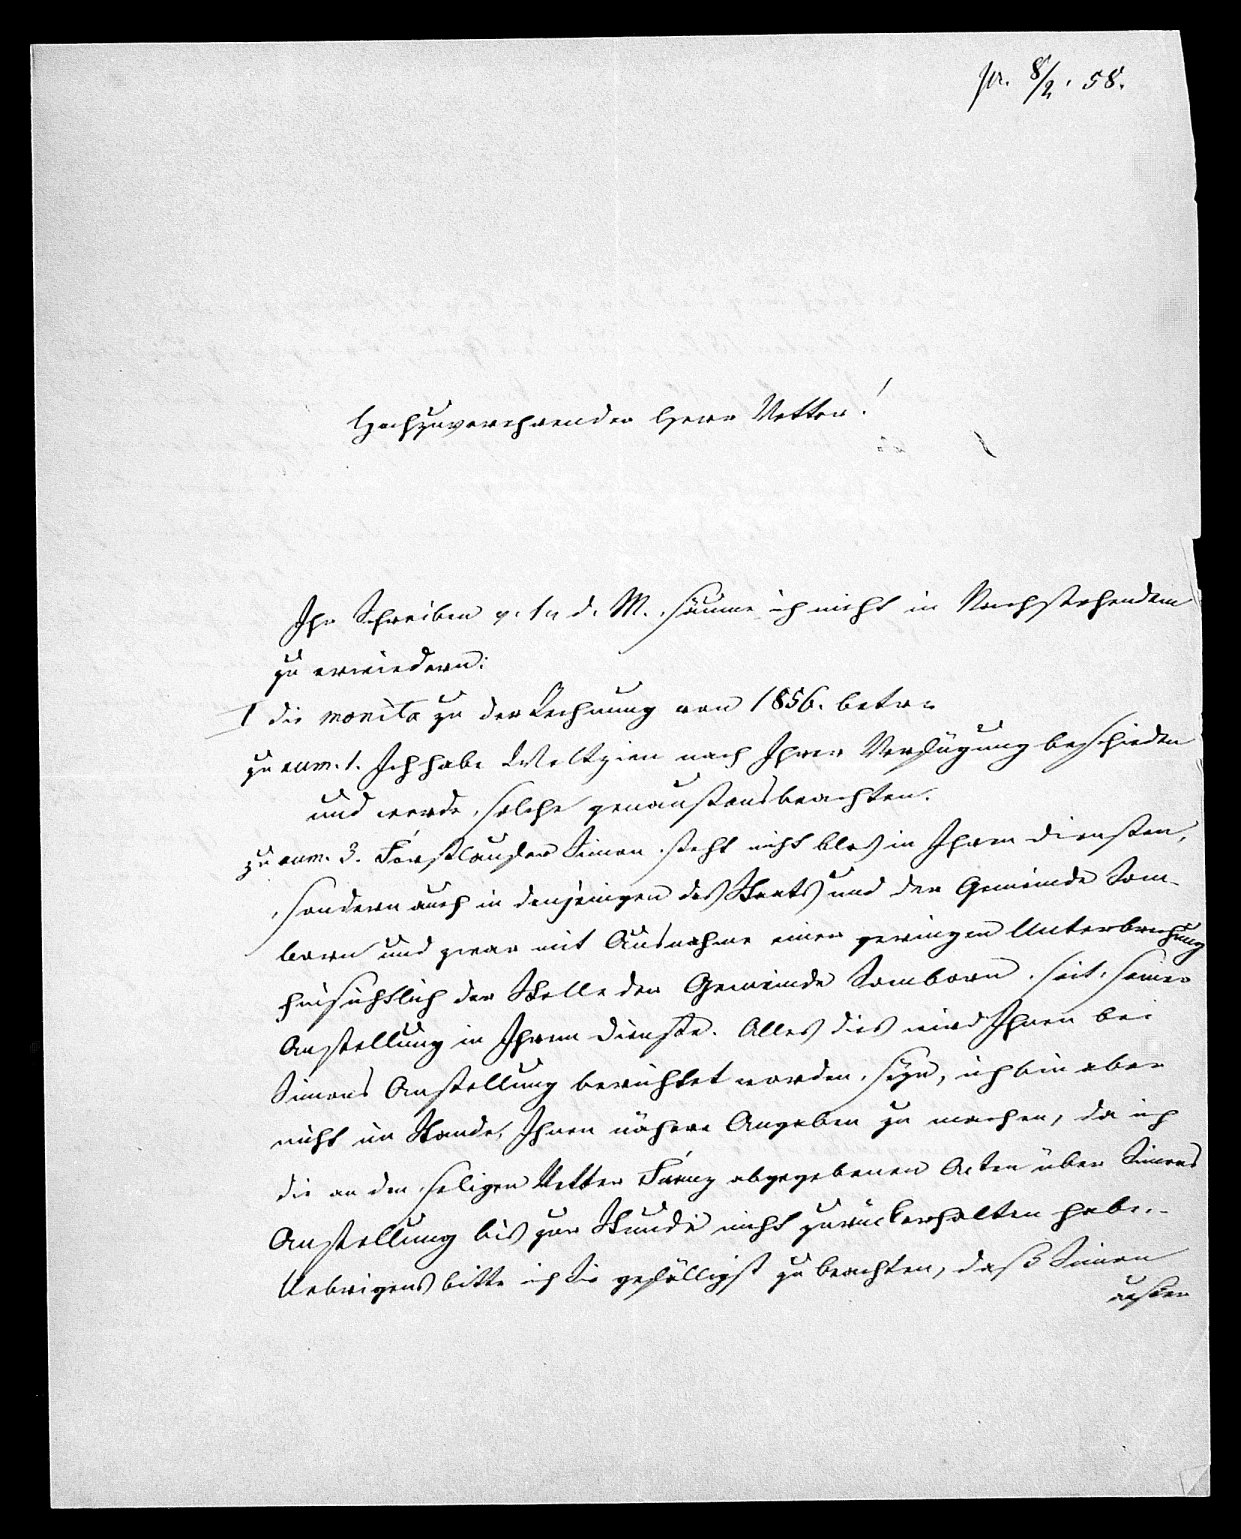 pr. 8/2. 58.
Hochzuverehrender Herr Vetter!
Ihr Schreiben v. 1n d. M. säume ich nicht in Nachstehendem
zu erwiedern:
1 die monita zu der Rechnung von 1856. betr.
zu num. 1. Ich habe Weltzien nach Ihrer Verfügung beschieden
und werde solche genaustens beachten.
zu num. 3. Forstläufer Simon steht nicht blos in Ihren Diensten,
sondern auch in denjenigen des Staats und der Gemeinde Som-
born und zwar mit Ausnahme einer geringen Unterbrechung
hinsichtlich der Stelle der Gemeinde Somborn seit seiner
Anstellung in Ihrem Dienste. Alles dies wird Ihnen bei
Simons Anstellung berichtet worden seyn, ich bin aber
nicht im Stande, Ihnen nähere Angaben zu machen, da ich
die an den seligen Vetter Franz abgegebenen Acten über Simons
Anstellung bis zur Stunde nicht zurückerhalten habe.-
Uebrigens bitte ich Sie gefälligst zu beachten, daß Simon
außer